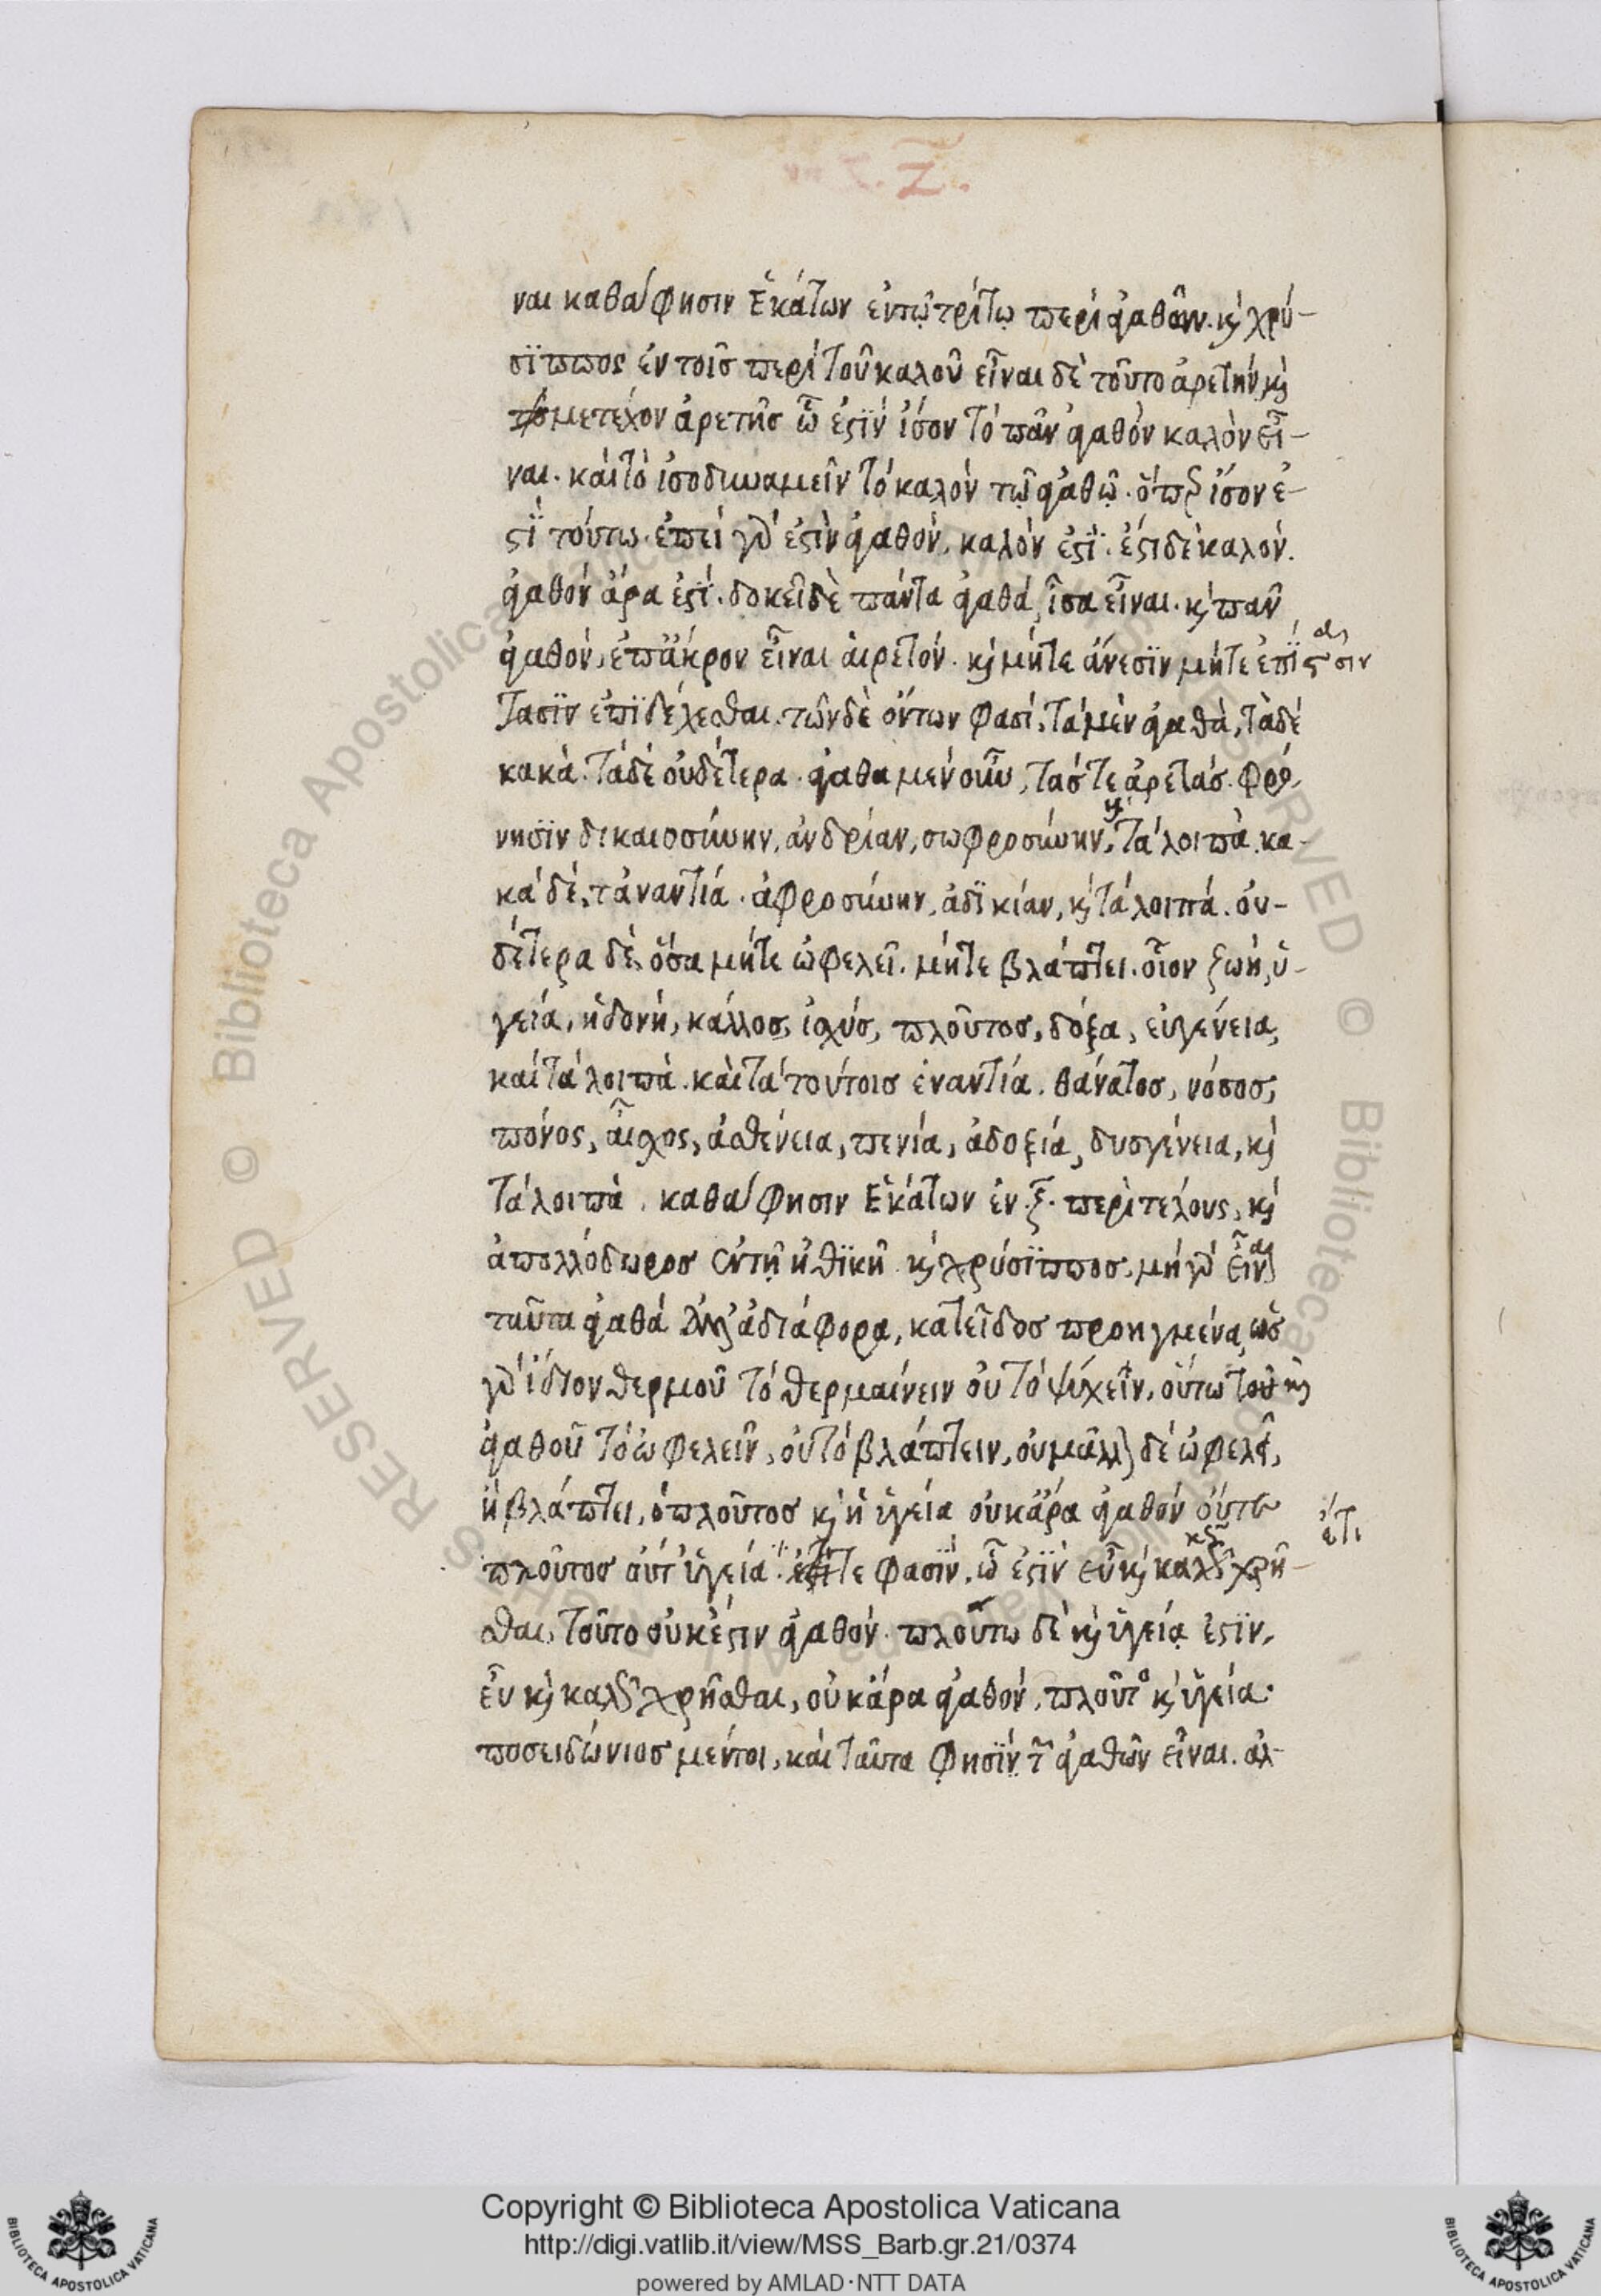 Ζ.
ναι καθά φησιν Ἑκάτων ἐν τῷ τρίτῳ περὶ ἀγαθῶν. καὶ χρύ-
σϊππος ἐν τοῖς περὶ τοῦ καλοῦ εἶναι δὲ τοῦτο ἀρετὴν καὶ
τὸ μετεχόν ἀρετῆς ὧ ἐστϊν ἴσον τὸ πᾶν ἀγαθὸν καλὸν εἶ-
ναι. καὶ τὸ ἰσοδυναμεῖν τὸ καλὸν τῷ ἀγαθῷ. ὅπερ ἴσον ἐ-
στϊ τούτω. ἐπεὶ γὰρ ἐστὶν ἀγαθόν, καλόν ἐστϊ. ἐστι δὲ καλόν.
ἀγαθόν ἄρα ἐστϊ. δοκεῖ δὲ πάντα ἀγαθά, ἴσα εἶναι. καὶ πᾶν
ἀγαθόν, ἐπἄκρον εἶναι αἱρετόν. καὶ μήτε ἄνεσϊν μήτε ἐπϊ
στασιν
τασϊν ἐπϊδέχεσθαι. τῶν δὲ ὄντων φασί, τὰ μὲν ἀγαθὰ, τὰ δέ
κακὰ. τὰ δὲ οὐδέτερα. ἀγαθα μὲν οὖν, τάς τε ἀρετάς. φρό-
νησϊν δικαιοσύνην, ἀνδρίαν, σωφροσύνην, καὶ τὰ λοιπὰ. κα-
κὰ δὲ, τἀναντία. ἀφροσύνην, ἀδϊκίαν, καὶ τὰ λοιπά. οὐ-
δέτερα δὲ, ὅσα μήτε ὠφελεῖ. μήτε βλάπτει. οἷον ζωή, ὑ-
γεία, ἡδονή, κάλλος, ἰσχύς, πλοῦτος, δόξα, εὐγένεια,
καὶ τὰ λοιπὰ. καὶ τὰ τούτοις ἐναντία. θάνατος, νόσος,
πόνος, αἶσχος, ἀσθένεια, πενία, ἀδοξία, δυσγένεια, καὶ
τὰ λοιπὰ. καθά φησιν Ἑκάτων ἐν ζ. περὶ τέλους, καὶ
ἀπολλόδωρος ἐν τῇ ἠθϊκῇ. καὶ χρύσϊππος. μὴ γὰρ εἶναι
ταῦτα ἀγαθά ἀλλ' ἀδιάφορα, κατεῖδος προηγμένα, ὡς
γὰρ ἴδιον θερμοῦ τὸ θερμαίνειν οὐ τὸ ψύχειν, οὕτω τοῦ καὶ
ἀγαθοῦ τὸ ὠφελεῖν, οὐ τὸ βλάπτειν, οὐ μᾶλλον δὲ ὠφελεῖ,
ἢ βλάπτει, ὁ πλοῦτος καὶ ἡ ὑγεία οὐκἄρα ἀγαθόν οὔτε
πλοῦτος οὔτ' ὑγεία. ἔτι
τε φασϊν, ὧ ἐστϊν εὖ καὶ κακῶς χρῆ-
σθαι, τοῦτο οὐκ ἔστιν ἀγαθόν. πλούτω δὲ καὶ ὑγείᾳ ἐστϊν,
εὖ καὶ κακῶς χρῆσθαι, οὐκἄρα ἀγαθόν, πλοῦτος καὶ ὑγεία.
ποσειδώνιος μέντοι, καὶ ταῦτα φησϊν τῶν ἀγαθῶν εἶναι. ἀλ-
Copyright © Biblioteca Apostolica Vaticana
http://digi.vatlib.it/view/MSS_Barb.gr.21/0374
powered by AMLAD·NTT DATA